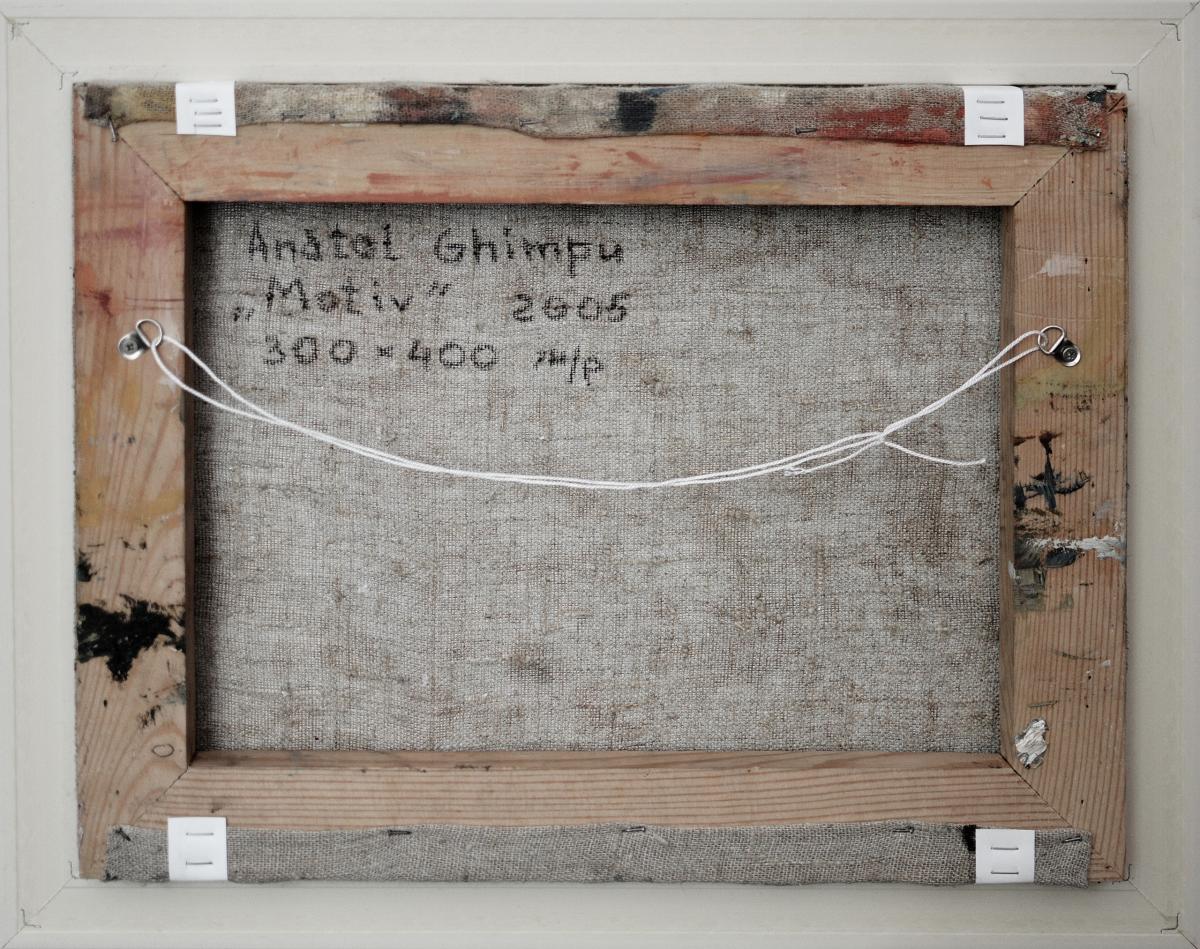 Anatol Ghimpu
„Motiv” 2005
300 × 400 м/р